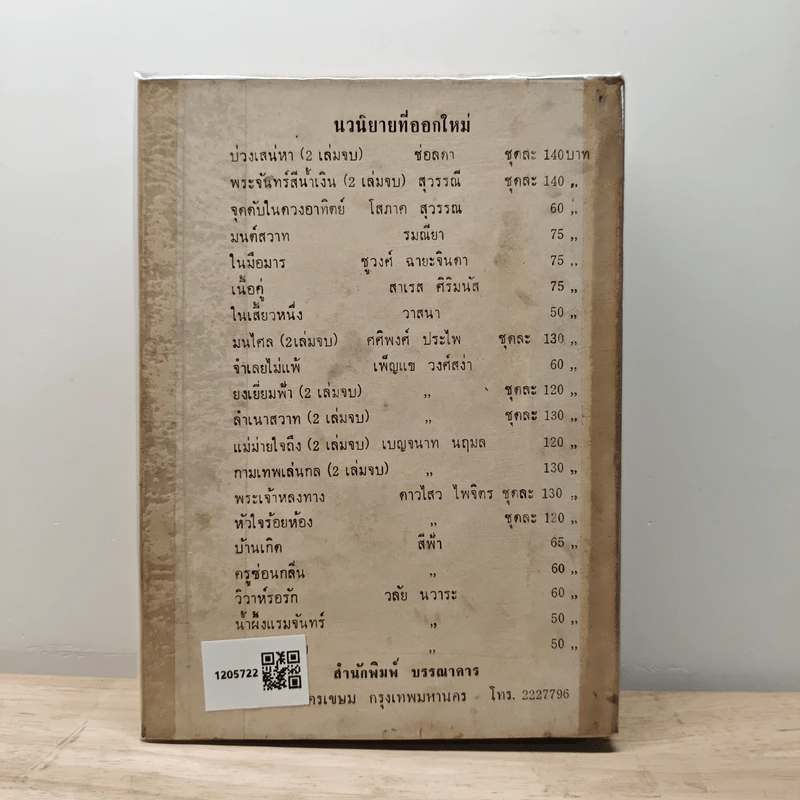 นวนิยายที่ออกใหม่
บ่วงเสน่หา (2 เล่มจบ) ช่อลดา ชุดละ 140 บาท
พระจันทร์สีน้ำเงิน (2 เล่มจบ) สุวรรณี ชุดละ 140 ,,
จุดดับในดวงอาทิตย์ โสภาค สุวรรณ 60 ,,
มนต์สวาท รมณียา 75 ,,
ในมือมาร ชูวงศ์ ฉายะจินดา 75 ,,
เนื้อคู่ สาเรส ศิริมนัส 75 ,,
ในเสี้ยวหนึ่ง วาสนา 50 ,,
มนไศล (2เล่มจบ) ศศิพงศ์ ประไพ ชุดละ 130 ,,
จำเลยไม่แพ้ เพ็ญแข วงศ์สง่า 60 ,,
ยงเยี่ยมฟ้า (2 เล่มจบ) ,, ชุดละ 120 ,,
ลำเนาสวาท (2 เล่มจบ) ,, ชุดละ 130 ,,
แม่ม่ายใจถึง (2 เล่มจบ) เบญจนาท นฤมล 120 ,,
กามเทพเล่นกล (2 เล่มจบ) ,, 130 ,,
พระเจ้าหลงทาง ดาวไสว ไพจิตร ชุดละ 130 ,,
หัวใจร้อยห้อง ,, ชุดละ 120 ,,
บ้านเกิด สีฟ้า 65 ,,
ครูซ่อนกลิ่น ,, 60 ,,
วิวาห์รอรัก วลัย นวาระ 60 ,,
น้ำผึ้งแรมจันทร์ ,, 50 ,,
,, 50 ,,
1205722
สำนักพิมพ์ บรรณาคาร
กรุงเทพมหานคร โทร. 2227796